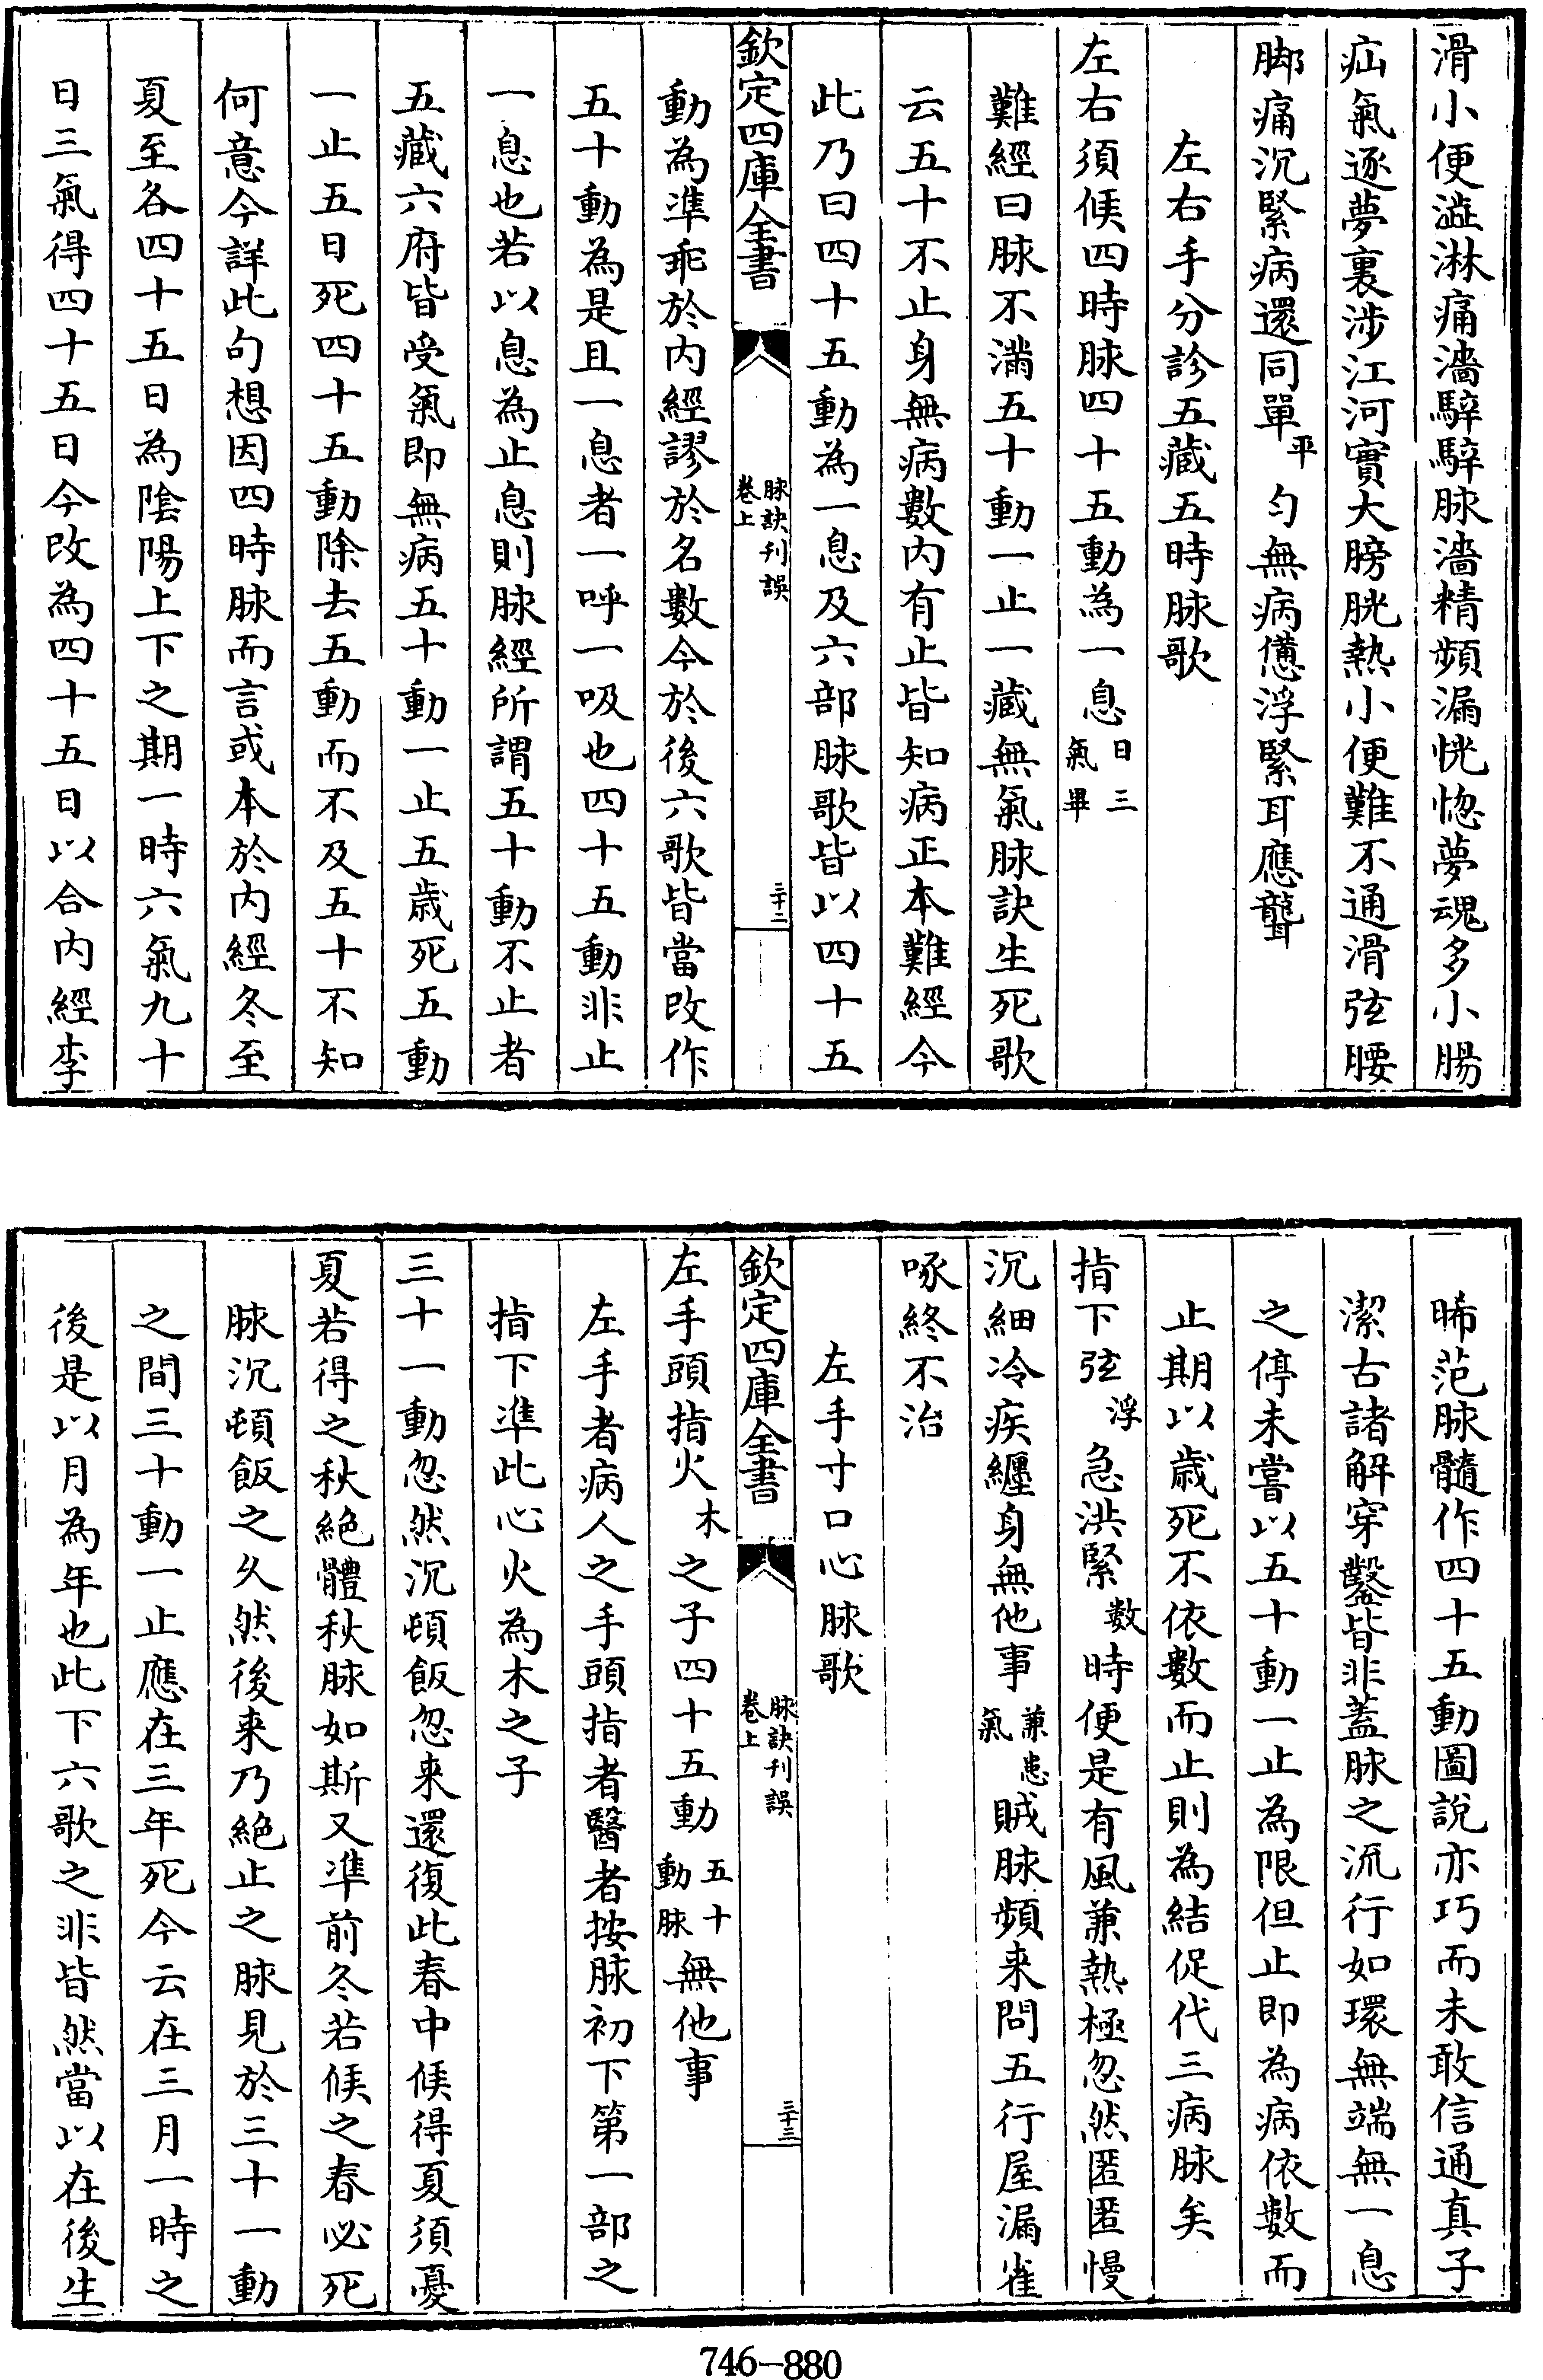 滑小便澁淋痛濇騂騂脉濇精頻漏恍惚夢魂多小腸
疝氣逐夢裏涉江河實大膀胱熱小便難不通滑弦腰
脚痛沉緊病還同單平匀無病憊浮緊耳應聾
左右手分診五藏五時脉歌
左右須候四時脉四十五動為一息日三氣畢
難經曰脉不滿五十動一止一藏無氣脉訣生死歌
云五十不止身無病數内有止皆知病正本難經今
此乃曰四十五動為一息及六部脉歌皆以四十五
欽定四庫全書
脉訣刊誤
卷上
三十二
動為準乖於内經謬於名數今於後六歌皆當改作
五十動為是且一息者一呼一吸也四十五動非止
一息也若以息為止息則脉經所謂五十動不止者
五藏六府皆受氣即無病五十動一止五歳死五動
一止五日死四十五動除去五動而不及五十不知
何意今詳此句想因四時脉而言或本於内經冬至
夏至各四十五日為陰陽上下之期一時六氣九十
日三氣得四十五日今改為四十五日以合内經李
晞范脉髓作四十五動圖說亦巧而未敢信通真子
潔古諸解穿鑿皆非蓋脉之流行如環無端無一息
之停未嘗以五十動一止為限但止即為病依數而
止期以歳死不依數而止則為結促代三病脉矣
指下弦浮急洪緊數時便是有風兼熱極忽然匿匿慢
沉細冷疾纏身無他事兼患氣賊脉頻来問五行屋漏雀
啄終不治
左手寸口心脉歌
欽定四庫全書
脉訣刊誤
卷上
三十三
左手頭指火木之子四十五動五十動脉無他事
左手者病人之手頭指者醫者按脉初下第一部之
指下準此心火為木之子
三十一動忽然沉頓飯忽来還復此春中候得夏須憂
夏若得之秋絶體秋脉如斯又準前冬若候之春必死
脉沉頓飯之久然後来乃絶止之脉見於三十一動
之間三十動一止應在三年死今云在三月一時之
後是以月為年也此下六歌之非皆然當以在後生
746-880